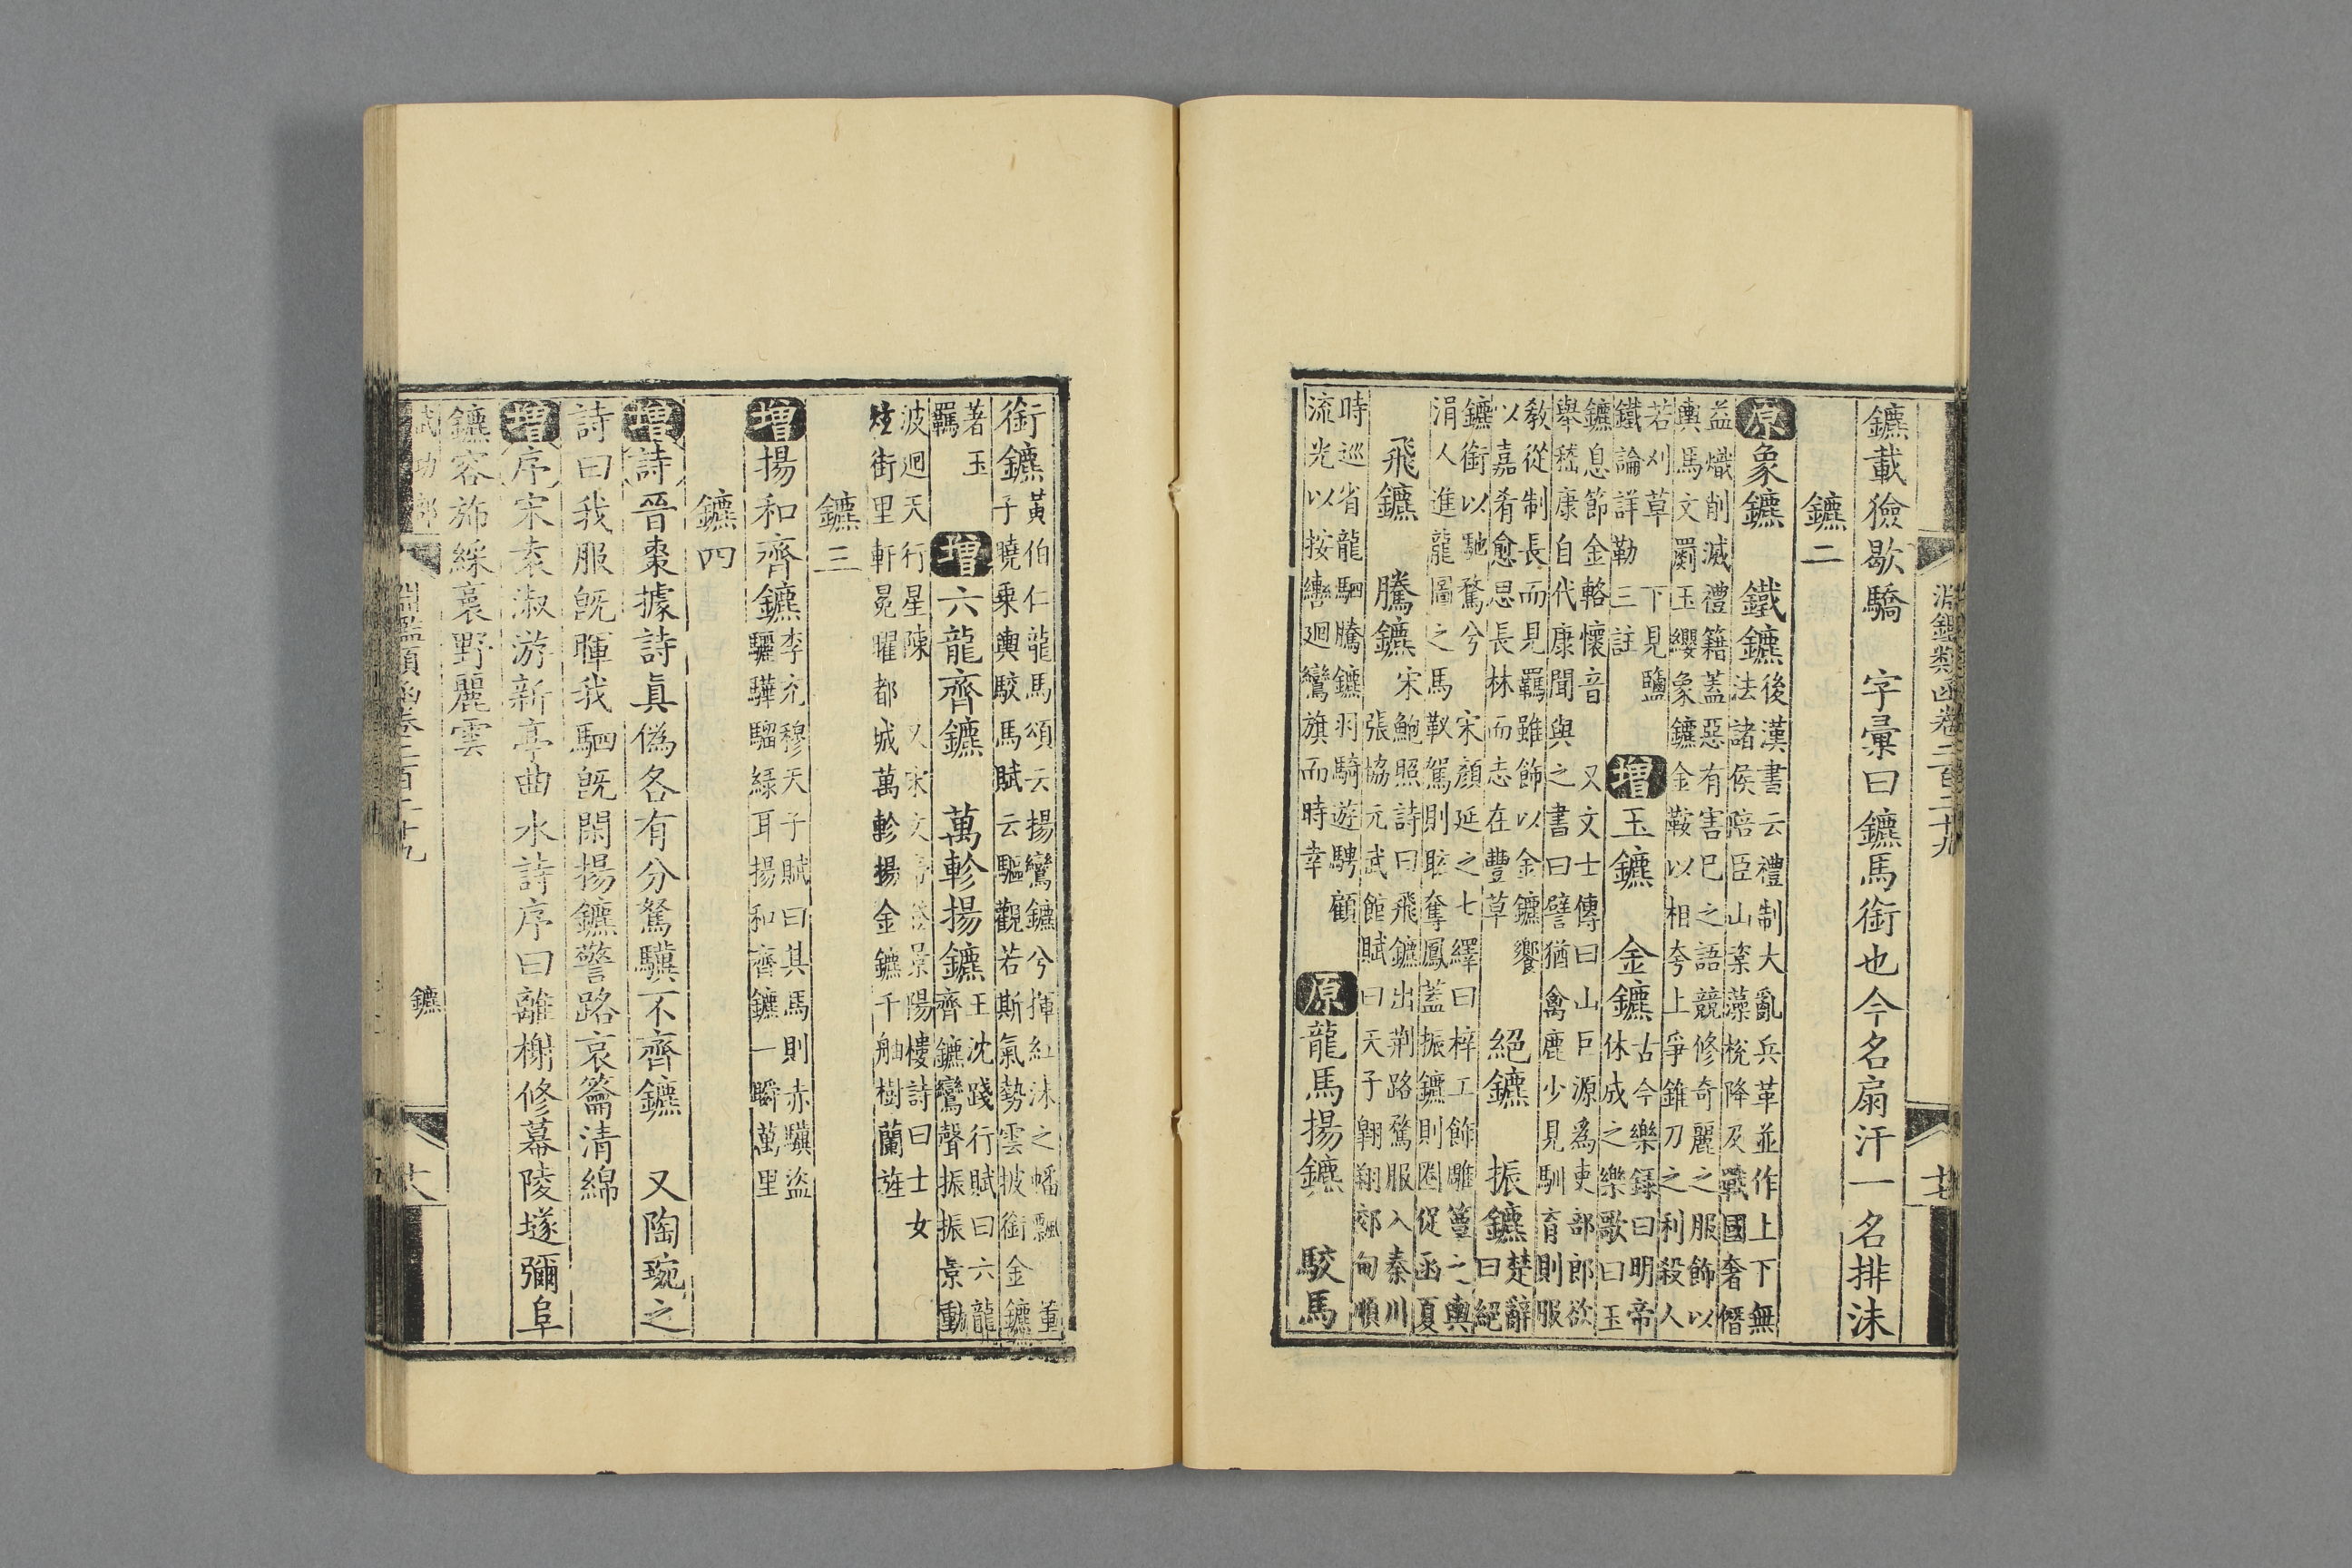 淵鑑類函卷二百二十九
鑣載獫歇驕　字彙曰鑣馬銜也今名扇汗一名排沫
鑣二
原象鑣　鐵鑣後漢書云禮制大亂兵革並作上下無
法諸侯陪臣山楶藻梲降及戰國奢僭
益熾削滅禮籍蓋惡有害已之語競修奇麗之服飾以
輿馬文罽玉纓象鑣金鞍以相夸上爭錐刀之利殺人
若刈草　下見鹽
鐵論詳勒三註
增玉鑣　金鑣古今樂錄曰明帝
休成之樂歌曰玉
鑣息節金輅懷音　又文士傳曰山巨源爲吏部郎欲
舉嵇康自代康聞與之書曰譬猶禽鹿少見馴育則服
敎從制長而見羈雖飾以金鑣饗
以嘉肴愈思長林而志在豐草
絕鑣　振鑣楚辭
曰絕
鑣銜以馳騖兮　宋顏延之七繹曰梓工飾雕簟之輿
涓人進龍圖之馬靷駕則眩奪鳳蓋振鑣則圈促函夏
飛鑣　騰鑣宋鮑照詩曰飛鑣出荆路騖服入秦川
張協元武館賦曰天子翺翔郊甸順
時巡省龍駟騰鑣羽騎遊騁顧
流光以按轡迴鸞旗而時幸
原龍馬揚鑣　駮馬
銜鑣黃伯仁龍馬頌云揚鸞鑣兮揮紅沫之幡飄　董
子曉乘輿駮馬賦云驅觀若斯氣勢雲披銜金鑣
著玉
羈
增六龍齊鑣　萬軫揚鑣王沈踐行賦曰六龍
齊鑣鸞聲振振景動
波迴天行星陳　又宋文帝登景陽樓詩曰士女
炫街里軒冕曜都城萬軫揚金鑣千舳樹蘭旌
鑣三
增揚和齊鑣李充穆天子賦曰其馬則赤驥盜
驪驊騮綠耳揚和齊鑣一瞬萬里
鑣四
增詩晉棗據詩眞僞各有分駑驥不齊鑣　又陶琬之
詩曰我服旣暉我駟旣閑揚鑣警路哀籥清綿
增序宋袁淑游新亭曲水詩序曰離榭修幕陵墜彌阜
鑣容斾綵裒野麗雲
鑣